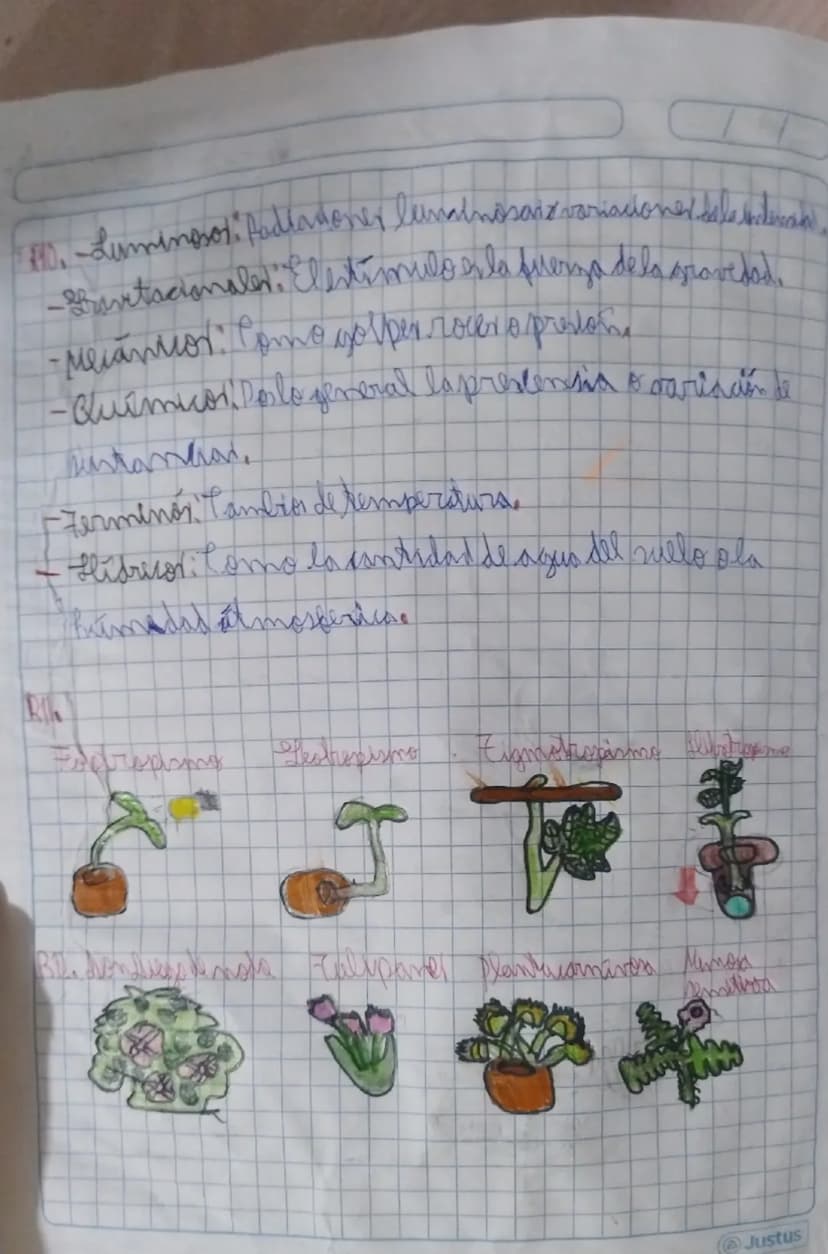 R10. - Luminosos: Radiaciones luminosas y variaciones de la
- Gravitacionales: El estímulo es la fuerza de la gravedad.
- Mecánicos: Como golpes roces o presión.
- Químicos: Por lo general la prescensia o variación de
sustancias.
- Terminós: Cambios de temperatura.
- Hídricos: Como la cantidad de agua del suelo o la
húmedad átmosferica.
R11.
Fototropismo Geotropismo . Tigmotropismo Hidrotropismo
R12. Dondiego de noche Tulipanes Plantas carnívoras Mimosa
sensitiva
© Justus